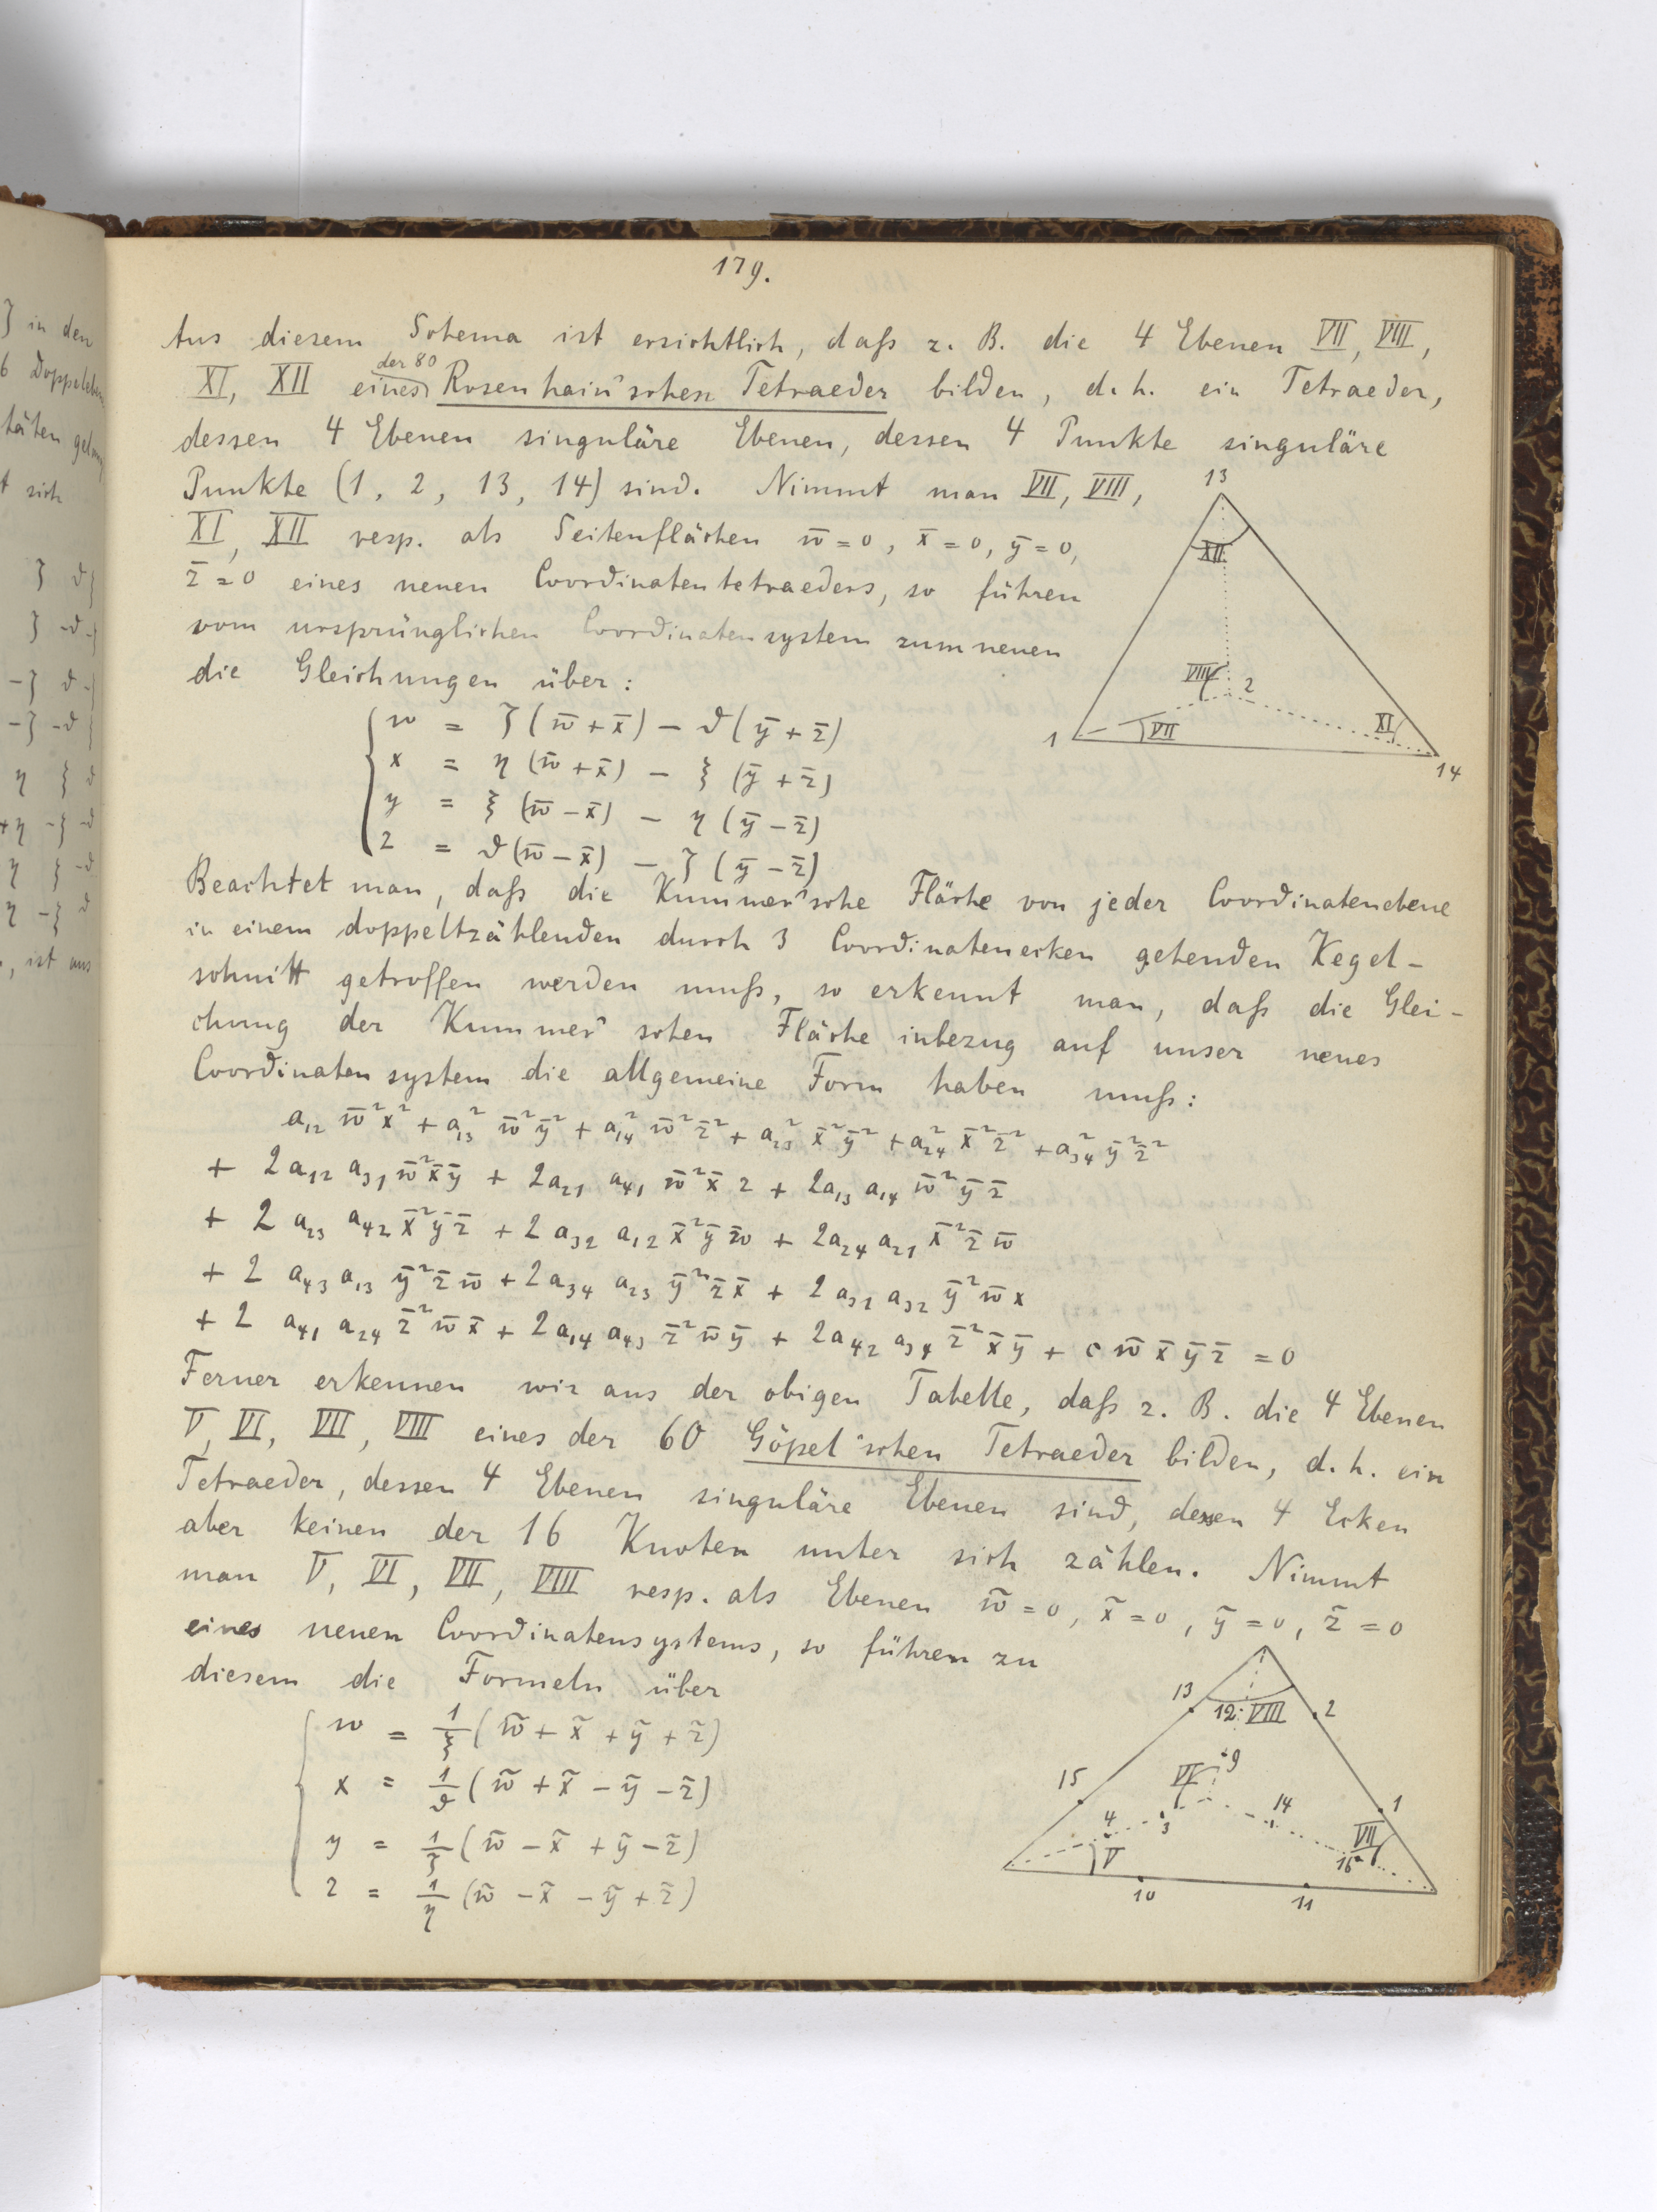 179.
Aus diesem Schema ist ersichtlich, daß z. B. die 4 Ebenen VII, VIII,
der 80
XI, XII eines Rosenhain'schen Tetraeder bilden, d. h. ein Tetraeder,
dessen 4 Ebenen singuläre Ebenen, dessen 4 Punkte singuläre
Punkte (1, 2, 13, 14) sind. Nimmt man VII, VIII,
XI, XII resp. als Seitenflächen w̄ = 0, x̄ = 0, ȳ = 0,
z̄ = 0 eines neuen Coordinatentetraeders, so führen
vom ursprünglichen Coordinatensystem zum neuen
die Gleichungen über:
13
XII
VIII
2
1
VII
XI
14
w = ζ(w̄ + x̄) − ϑ(ȳ + z̄)
x = η(w̄ + x̄) − ξ(ȳ + z̄)
y = ξ(w̄ − x̄) − η(ȳ − z̄)
z = ϑ(w̄ − x̄) − ζ(ȳ − z̄)
Beachtet man, daß die Kummer'sche Fläche von jeder Coordinatenebene
in einem doppeltzählenden durch 3 Coordinatenecken gehenden Kegel-
schnitt getroffen werden muß, so erkennt man, daß die Glei-
chung der Kummer'schen Fläche inbezug auf unser neues
Coordinatensystem die allgemeine Form haben muß:
a₁₂ w̄²x² + a₁₃² w̄²ȳ² + a₁₄² w̄²z̄² + a₂₃² x̄²ȳ² + a₂₄² x̄²z̄² + a₃₄² ȳ²z̄²
+ 2a₁₂ a₃₁ w̄²x̄ȳ + 2a₂₁ a₄₁ w̄²x̄ z + 2a₁₃ a₁₄ w̄²ȳz̄
+ 2 a₂₃ a₄₂ x̄²ȳz̄ + 2 a₃₂ a₁₂ x̄²ȳw̄ + 2a₂₄ a₂₁ x̄²z̄w̄
+ 2 a₄₃ a₁₃ ȳ²z̄w̄ + 2a₃₄ a₂₃ ȳ²z̄x̄ + 2 a₃₁ a₃₂ ȳ²w̄x
+ 2 a₄₁ a₂₄ z̄²w̄x̄ + 2a₁₄ a₄₃ z̄²w̄ȳ + 2a₄₂ a₃₄ z̄²x̄ȳ + c w̄x̄ȳz̄ = 0
Ferner erkennen wir aus der obigen Tabelle, daß z. B. die 4 Ebenen
V, VI, VII, VIII eines der 60 Göpel'schen Tetraeder bilden, d. h. ein
Tetraeder, dessen 4 Ebenen singuläre Ebenen sind, dessen 4 Ecken
aber keinen der 16 Knoten unter sich zählen. Nimmt
man V, VI, VII, VIII resp. als Ebenen w̃ = 0, x̃ = 0, ỹ = 0, z̃ = 0
eines neuen Coordinatensystems, so führen zu
diesem die Formeln über
w = 1/ξ (w̃ + x̃ + ỹ + z̃)
x = 1/ϑ (w̃ + x̃ − ỹ − z̃)
y = 1/ζ (w̃ − x̃ + ỹ − z̃)
z = 1/η (w̃ − x̃ − ỹ + z̃)
13
12
VIII
2
9
VI
15
14
1
4
3
VII
V
16
10
11
ζ in den
6 Doppeleben
täten
t sich
ζ ϑ
ζ -ϑ
-ζ ϑ
-ζ -ϑ
η ξ ϑ
+η -ξ -ϑ
η ξ -ϑ
η -ξ ϑ
, ist aus